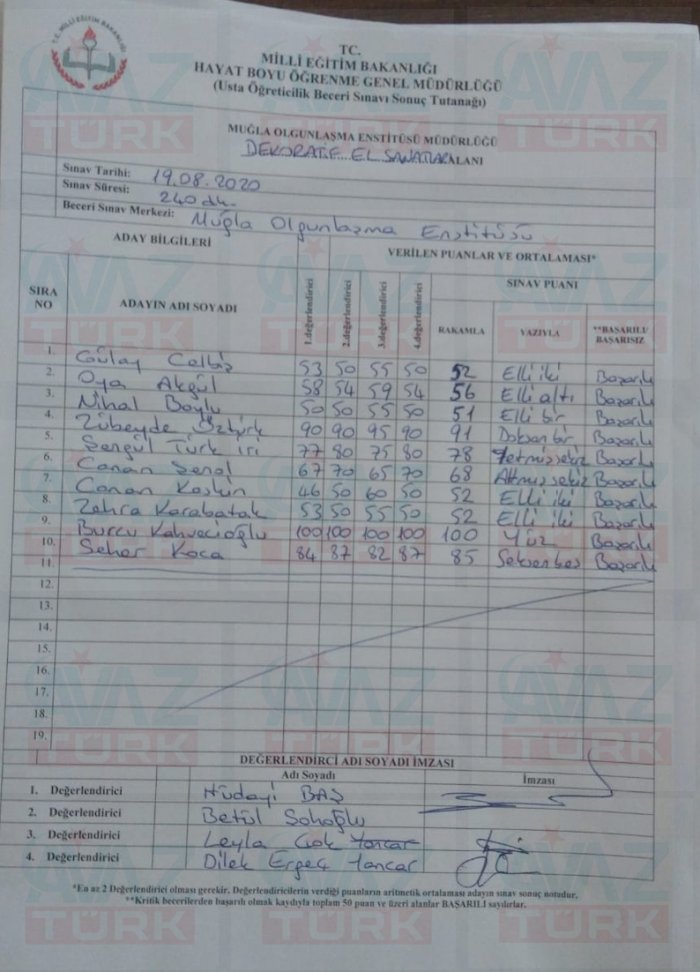 T.C. MİLLÎ EĞİTİM BAKANLIĞI
TC.
MİLLİ EĞİTİM BAKANLIĞI
HAYAT BOYU ÖĞRENME GENEL MÜDÜRLÜĞÜ
(Usta Öğreticilik Beceri Sınavı Sonuç Tutanağı)
MUĞLA OLGUNLAŞMA ENSTİTÜSÜ MÜDÜRLÜĞÜ
DEKORATİF EL SANATLARI ALANI
Sınav Tarihi: 19.08.2020
Sınav Süresi: 240 dk.
Beceri Sınav Merkezi: Muğla Olgunlaşma Enstitüsü
ADAY BİLGİLERİ VERİLEN PUANLAR VE ORTALAMASI*
SIRA NO ADAYIN ADI SOYADI 1.değerlendirici 2.değerlendirici 3.değerlendirici 4.değerlendirici SINAV PUANI
RAKAMLA YAZIYLA **BAŞARILI/ BAŞARISIZ
1. Gülay 53 50 55 50 52 Elli iki Başarılı
2. Oya Akgül 58 54 59 54 56 Elli altı Başarılı
3. Nihal Boylu 50 50 55 50 51 Elli bir Başarılı
4. Zübeyde Öztürk 90 90 95 90 91 Doksan bir Başarılı
5. Şengül Türk iri 77 80 75 80 78 Yetmişsekiz Başarılı
6. Canan Şenol 67 70 65 70 68 Altmışsekiz Başarılı
7. Canan Keskin 46 50 60 50 52 Elli iki Başarılı
8. Zehra Karabatak 53 50 55 50 52 Elli iki Başarılı
9. Burcu Kahvecioğlu 100 100 100 100 100 Yüz Başarılı
10. Seher Koca 84 87 82 87 85 Seksenbeş Başarılı
11.
12.
13.
14.
15.
16.
17.
18.
19.
DEĞERLENDİRCİ ADI SOYADI İMZASI
Adı Soyadı İmzası
1. Değerlendirici Hüdayi BAŞ
2. Değerlendirici Betül
3. Değerlendirici Leyla Çok Yancar
4. Değerlendirici Dilek Ergeç Yancar
*En az 2 Değerlendirici olması gerekir. Değerlendiricilerin verdiği puanların aritmetik ortalaması adayın sınav sonuç notudur.
**Kritik becerilerden başarılı olmak kaydıyla toplam 50 puan ve üzeri alanlar BAŞARILI sayılırlar.
AVAZ
TÜRK